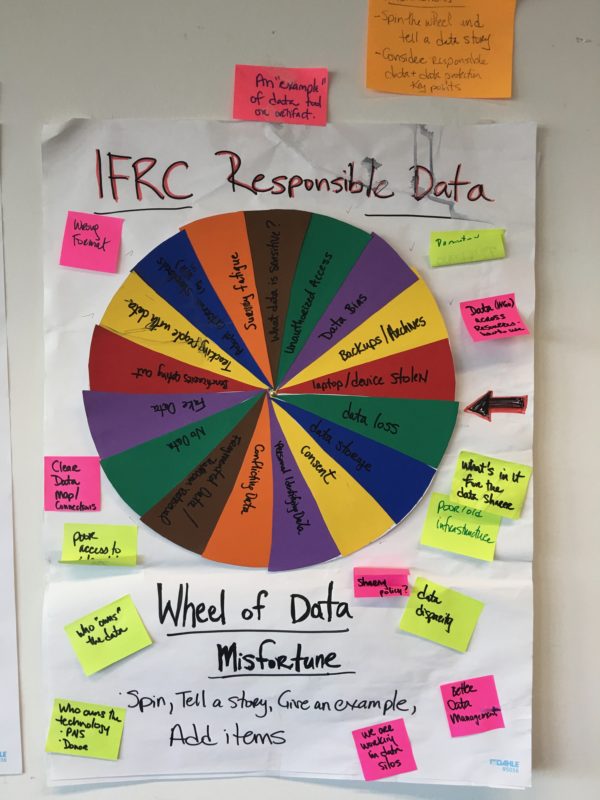 - Spin the wheel and
tell a data story
- Consider responsible
data + data protection
key points
An "example"
of data tool
or artifact.
IFRC Responsible Data
Wrong
Format
What data is sensitive?
Unauthorized Access
Data Bias
Backups/Archives
laptop/device stolen
data loss
data storage
Consent
Personal Identifying Data
Conflicting Data
Fragmented Data/
No Data
Fake Data
Beneficiaries opting out
Teaching people with data
Data
across
Clear
Data
Map/
Connections
Poor
access to
What's in it
for the
data sharer
Poor/old
infrastructure
Sharing
policy?
data
disparity
Who "owns"
the data
Wheel of Data
Misfortune
Spin, Tell a story, Give an example,
Add items
Who owns the
technology
· PNS
· Donor
we are
working
in data
silos
Better
Data
Management
DAHLE